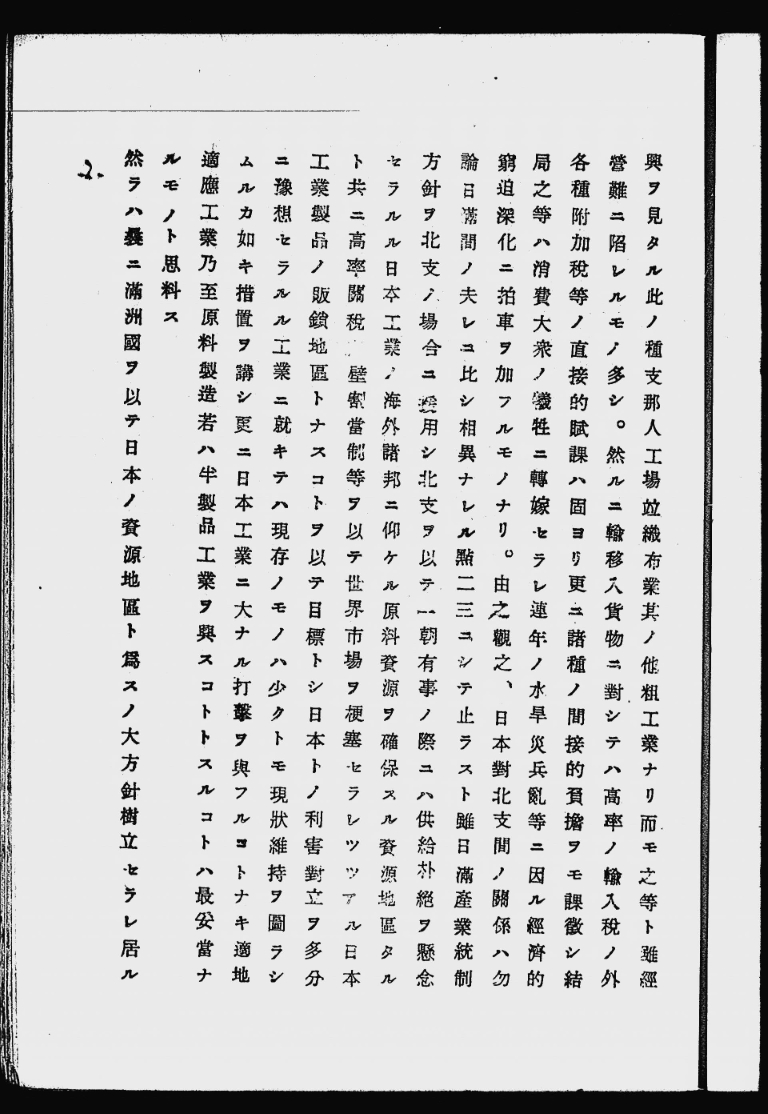 興ヲ見タル此ノ種支那人工場竝織布業其ノ他粗工業ナリ而モ之等ト雖經
營難ニ陷レルモノ多シ。然ルニ輸移入貨物ニ對シテハ高率ノ輸入稅ノ外
各種附加稅等ノ直接的賦課ハ固ヨリ更ニ諸種ノ間接的負擔ヲモ課徵シ結
局之等ハ消費大衆ノ犧牲ニ轉嫁セラレ連年ノ水旱災兵亂等ニ因ル經濟的
窮迫深化ニ拍車ヲ加フルモノナリ。由之觀之、日本對北支間ノ關係ハ勿
論日滿間ノ夫レニ比シ相異ナレル點二三ニシテ止ラスト雖日滿產業統制
方針ヲ北支ノ場合ニ援用シ北支ヲ以テ一朝有事ノ際ニハ供給杜絕ヲ懸念
セラルル日本工業ノ海外諸邦ニ仰ケル原料資源ヲ確保スル資源地區タル
ト共ニ高率關稅 壁割當制等ヲ以テ世界市場ヲ梗塞セラレツツアル日本
工業製品ノ販鎖地區トナスコトヲ以テ目標トシ日本トノ利害對立ヲ多分
ニ豫想セラルル工業ニ就キテハ現存ノモノハ少クトモ現狀維持ヲ圖ラシ
ムルカ如キ措置ヲ講シ更ニ日本工業ニ大ナル打擊ヲ與フルコトナキ適地
適應工業乃至原料製造若ハ半製品工業ヲ興スコトトスルコトハ最安當ナ
ルモノト思料ス
然ラハ曩ニ滿洲國ヲ以テ日本ノ資源地區ト爲スノ大方針樹立セラレ居ル
2.